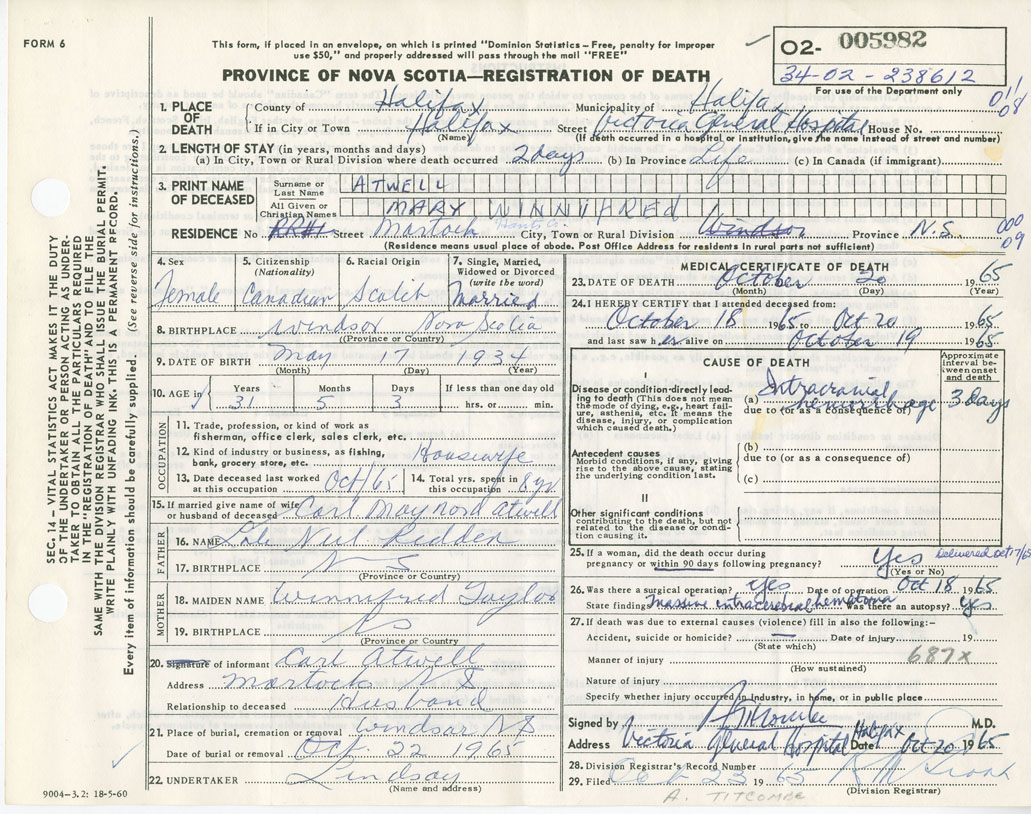 FORM 6
This form, if placed in an envelope, on which is printed "Dominion Statistics—Free, penalty for improper
use $50," and properly addressed will pass through the mail "FREE"
PROVINCE OF NOVA SCOTIA—REGISTRATION OF DEATH
02- 005982
34-02-238612
For use of the Department only
011
08
1. PLACE OF DEATH
County of Halifax Municipality of Halifax
If in City or Town Halifax Street Victoria General Hospital House No.
(Name) (If death occurred in a hospital or institution, give the name instead of street and number)
2. LENGTH OF STAY (in years, months and days)
(a) In City, Town or Rural Division where death occurred 2 days (b) In Province Life (c) In Canada (if immigrant)
3. PRINT NAME OF DECEASED
Surname or Last Name ATWELL
All Given or Christian Names MARY WINNIFRED
RESIDENCE No RR#1 Street Martock Hants Co. City, Town or Rural Division Windsor Province N.S.
000
09
(Residence means usual place of abode. Post Office Address for residents in rural parts not sufficient)
4. Sex
Female
5. Citizenship (Nationality)
Canadian
6. Racial Origin
Scotch
7. Single, Married, Widowed or Divorced (write the word)
Married
8. BIRTHPLACE Windsor Nova Scotia
(Province or Country)
9. DATE OF BIRTH May 17 1934
(Month) (Day) (Year)
10. AGE in Years Months Days If less than one day old
31 5 3 hrs. or min.
OCCUPATION
11. Trade, profession, or kind of work as
fisherman, office clerk, sales clerk, etc.
12. Kind of industry or business, as fishing,
bank, grocery store, etc. Housewife
13. Date deceased last worked
at this occupation Oct/65
14. Total yrs. spent in
this occupation 8 yr.
15. If married give name of wife
or husband of deceased Carl Maynard Atwell
FATHER
16. NAME Neil Redden
17. BIRTHPLACE N S
(Province or Country)
MOTHER
18. MAIDEN NAME Winnifred Taylor
19. BIRTHPLACE N S
(Province or Country)
20. Signature of informant Carl Atwell
Address Martock N S
Relationship to deceased Husband
21. Place of burial, cremation or removal Windsor N S
Date of burial or removal Oct. 22 1965
22. UNDERTAKER Lindsay
(Name and address)
9004-3.2: 18-5-60
MEDICAL CERTIFICATE OF DEATH
23. DATE OF DEATH October 20 1965
(Month) (Day) (Year)
24. I HEREBY CERTIFY that I attended deceased from:
October 18 1965 to Oct 20 1965
and last saw her alive on October 19 1965
CAUSE OF DEATH
Approximate interval between onset and death
I
Disease or condition directly leading to death (This does not mean the mode of dying, e.g., heart failure, asthenia, etc. It means the disease, injury, or complication which caused death.)
(a) Intracranial hemorrhage 3 days
due to (or as a consequence of)
Antecedent causes
Morbid conditions, if any, giving rise to the above cause, stating the underlying condition last.
(b)
due to (or as a consequence of)
(c)
II
Other significant conditions
contributing to the death, but not related to the disease or condition causing it.
25. If a woman, did the death occur during
pregnancy or within 90 days following pregnancy? Yes Delivered Oct 17/65
(Yes or No)
26. Was there a surgical operation? yes Date of operation Oct 18 1965
State findings Massive intracerebral hematoma Was there an autopsy? Yes
27. If death was due to external causes (violence) fill in also the following:—
Accident, suicide or homicide? — Date of injury 19
(State which)
Manner of injury 687x
(How sustained)
Nature of injury
Specify whether injury occurred in industry, in home, or in public place
Signed by A Titcombe M.D.
Address Victoria General Hospital Halifax Date Oct 20 1965
28. Division Registrar's Record Number
29. Filed Oct 23 1965
(Division Registrar)
A. TITCOMBE
SEC. 14 - VITAL STATISTICS ACT MAKES IT THE DUTY
OF THE UNDERTAKER OR PERSON ACTING AS UNDER-
TAKER TO OBTAIN ALL THE PARTICULARS REQUIRED
IN THE "REGISTRATION OF DEATH" AND TO FILE THE
SAME WITH THE DIVISION REGISTRAR WHO SHALL ISSUE THE BURIAL PERMIT.
WRITE PLAINLY WITH UNFADING INK. THIS IS A PERMANENT RECORD.
Every item of information should be carefully supplied. (See reverse side for instructions.)